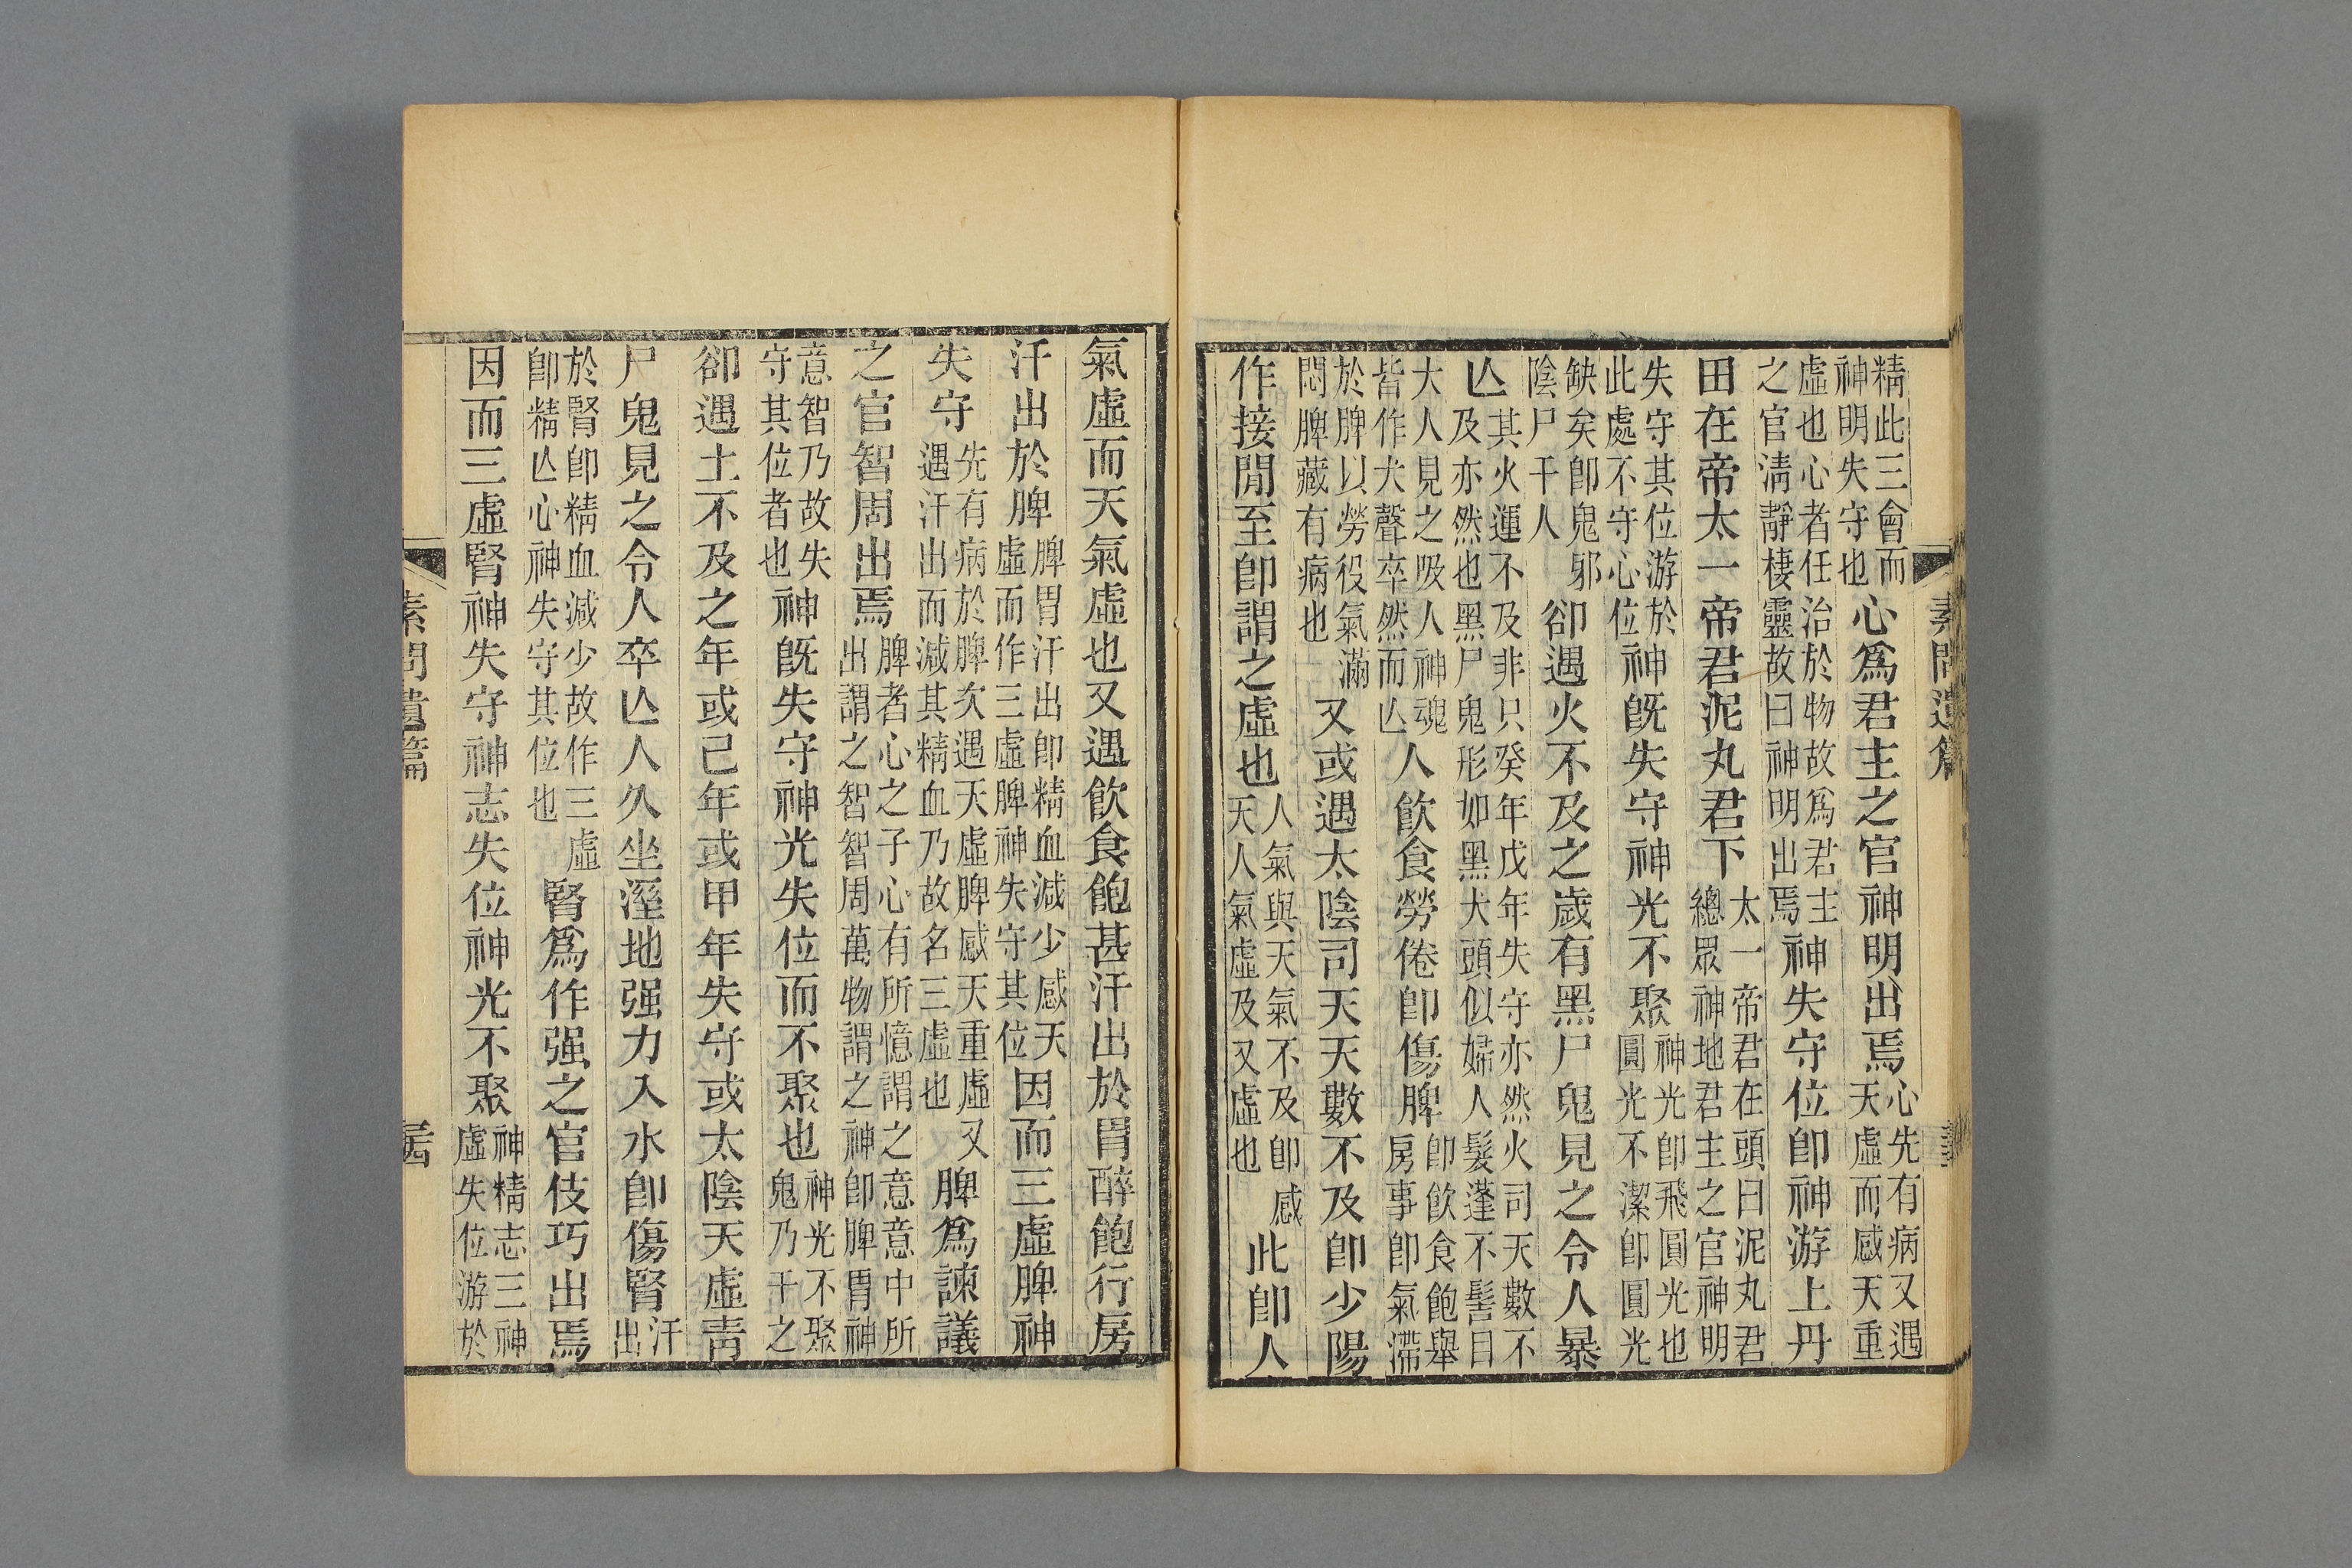 素問遺篇
精此三會而神明失守也心爲君主之官神明出焉心先有病又遇天虛而感天重
虛也心者任治於物故爲君主之官淸靜棲靈故曰神明出焉神失守位卽神游上丹
田在帝太一帝君泥丸君下太一帝君在頭曰泥丸君總眾神地君主之官神明
失守其位游於此處不守心位神旣失守神光不聚神光卽飛圓光也圓光不潔卽圓光
缺矣卽鬼邪陰尸干人卻遇火不及之歲有黑尸鬼見之令人暴
亾其火運不及非只癸年戊年失守亦然火司天數不及亦然也黑尸鬼形如黑犬頭似婦人髮蓬不髻日
大人見之吸人神魂皆作犬聲卒然而亾人飮食勞倦卽傷脾卽飮食飽舉房事卽氣滯
於脾以勞役氣滿悶脾藏有病也又或遇太陰司天天數不及卽少陽
作接閒至卽謂之虛也人氣與天氣不及卽感天人氣虛及又虛也此卽人
氣虛而天氣虛也又遇飮食飽甚汗出於胃醉飽行房
汗出於脾脾胃汗出卽精血減少感天虛而作三虛脾神失守其位因而三虛脾神
失守先有病於脾次遇天虛脾感天重虛又遇汗出而減其精血乃故名三虛也脾爲諫議
之官智周出焉脾者心之子心有所憶謂之意意中所出謂之智智周萬物謂之神卽脾胃神
意智乃故失守其位者也神旣失守神光失位而不聚也神光不聚鬼乃干之
卻遇土不及之年或己年或甲年失守或太陰天虛靑
尸鬼見之令人卒亾人久坐溼地强力入水卽傷腎汗出
於腎卽精血減少故作三虛卽精亾心神失守其位也腎爲作强之官伎巧出焉
因而三虛腎神失守神志失位神光不聚神精志三神虛失位游於
素問遺篇